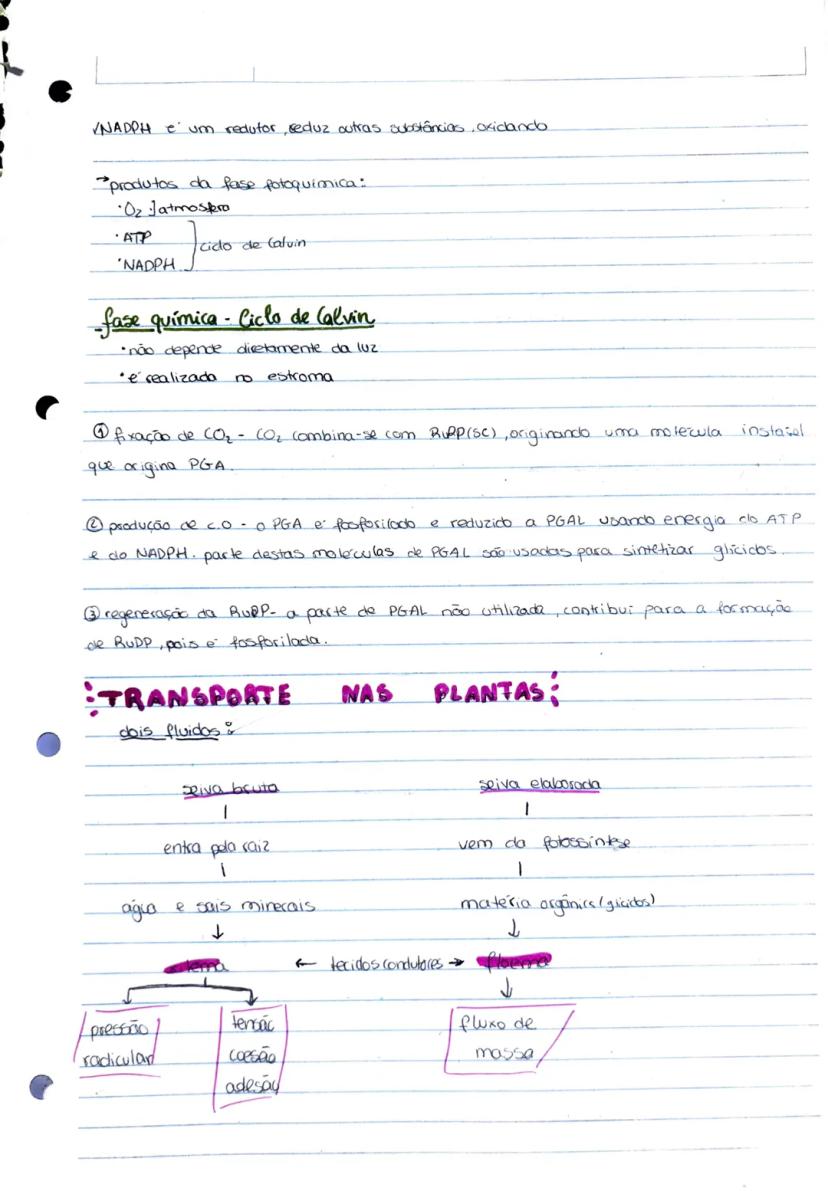 √NADPH é um redutor, reduz outras substâncias, oxidando
→produtos da fase fotoquímica:
·O₂ ]atmosfera
·ATP
]ciclo de Calvin
·NADPH
-fase química - Ciclo de Calvin
·não depende diretamente da luz
·é realizada no estroma
① fixação de CO₂ - CO₂ combina-se com RuPP(5C), originando uma molécula instável
que origina PGA.
② produção de c.o - o PGA é fosforilado e reduzido a PGAL usando energia do ATP
e do NADPH. parte destas moléculas de PGAL são usadas para sintetizar glícidos.
③ regeneração da RuPP- a parte de PGAL não utilizada, contribui para a formação
de RuDP, pois é fosforilada.
TRANSPORTE NAS PLANTAS
dois fluidos:
seiva bruta seiva elaborada
entra pela raiz vem da fotossíntese
água e sais minerais matéria orgânica (glícidos)
xilema ← tecidos condutores → floema
pressão tensão fluxo de
radicular coesão massa
adesão